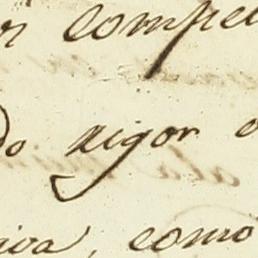 compe
do rigor
iva, como